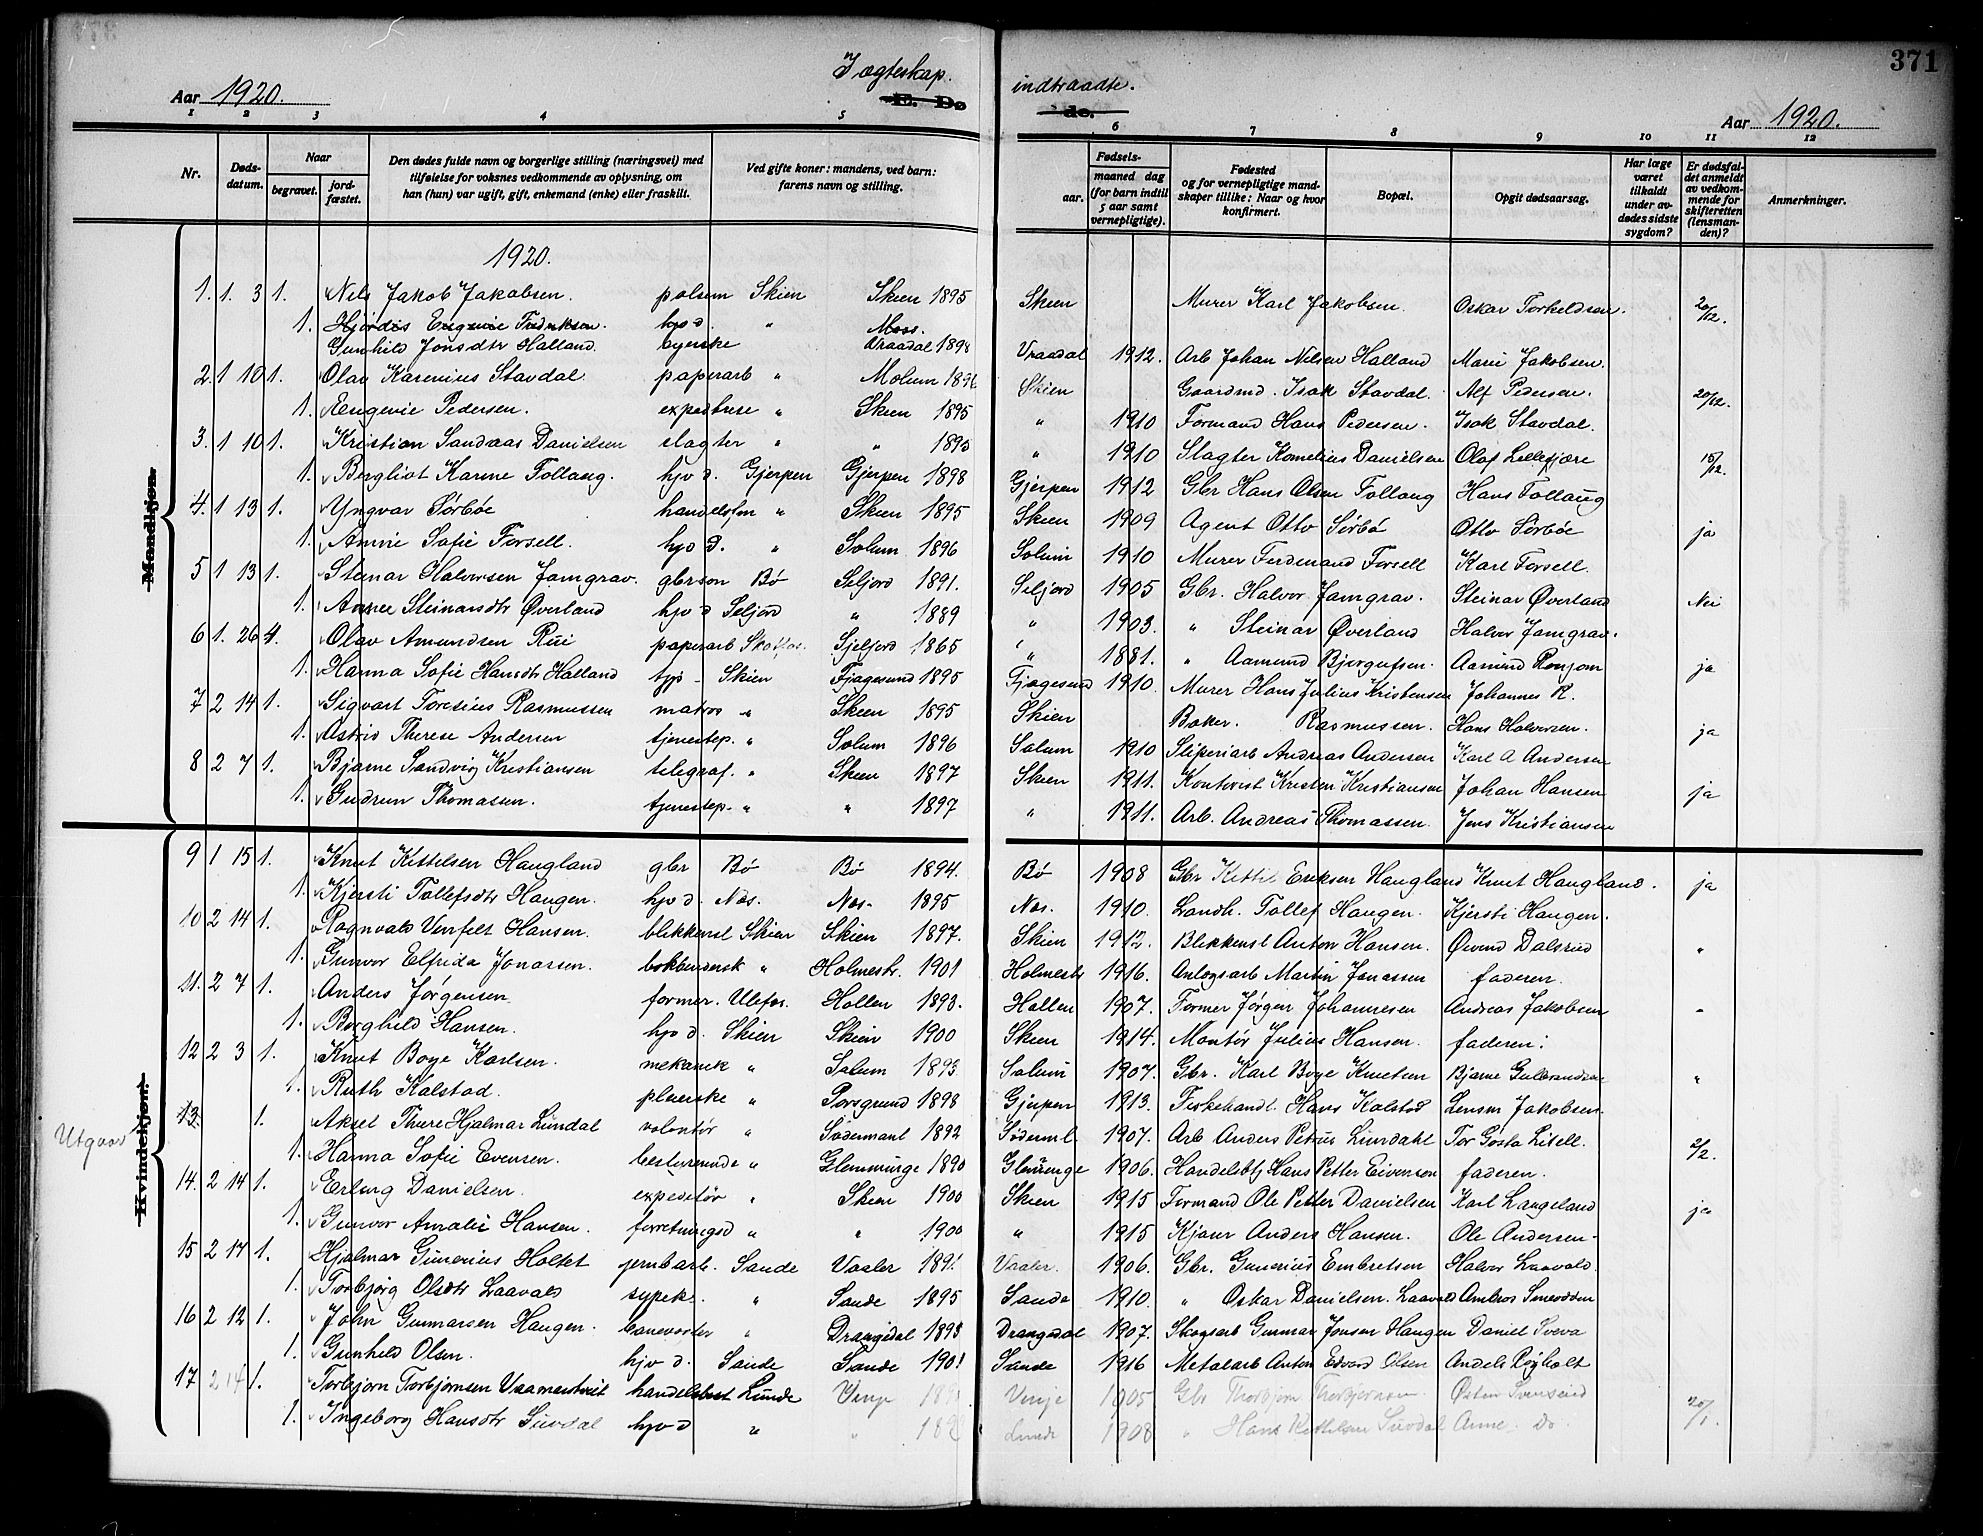 371
I ægteskap indtraadte.
Aar 1920. E. Dø de. Aar 1920.
1 2 3 4 5 6 7 8 9 10 11 12
Nr. Døds-datum. Naar begravet. jord-fæstet. Den dødes fulde navn og borgerlige stilling (næringsvei) med tilføielse for voksnes vedkommende av oplysning, om han (hun) var ugift, gift, enkemand (enke) eller fraskilt. Ved gifte koner: mandens, ved barn: farens navn og stilling. Fødsels- aar. maaned dag (for barn indtil 5 aar samt vernepligtige). Fødested og for vernepligtige mand-skaper tillike: Naar og hvor konfirmert. Bopæl. Opgit dødsaarsag. Har læge været tilkaldt under av-dødes sidste sygdom? Er dødsfal-det anmeldt av vedkom-mende for skifteretten (lensman-den)? Anmerkninger.
Mandkjøn.
1920.
1. 1. 3 1. Nils Jakob Jakobsen. polsem Skien Skien 1895 Skien Murer Karl Jakobsen Oskar Torkeldsen. 20/12.
1. Hjørdis Engevie Fredriksen. hjv d. " Moss.
Gunhild Jonsdtr Halland. byerske Vraadal 1898 Vraadal 1912. Arb Johan Nilsen Halland Marie Jakobsen.
2. 1 10 1. Olav Karenius Stavdal. paperarb " Molum 1896 Skien Gaardmd. Isak Stavdal. Alf Pedersen. 20/12.
1. Engevie Pedersen. expedtrise " Skien 1895 " 1910 Formand Hans Pedersen. Isak Stavdal.
3. 1 10 1. Kristian Sandaas Danielsen slagter " " 1895 " 1910 Slagter Kornelius Danielsen Olaf Lillefjære 15/12.
1. Bergliot Karine Follaug. hjv d. Gjerpen Gjerpen 1898 Gjerpen 1912 Gbr Hans Olsen Follaug Hans Follaug
4. 1 13 1. Yngvar Sørbøe handelsfm " Skien 1895 Skien 1909 Agent Otto Sørbø Otto Sørbøe ja
1. Annie Sofie Forsell. hjv d. " Solum 1896 Solum 1910 Murer Ferdinand Forsell Karl Forsell.
5 1 13 1. Steinar Halvorsen Jamgrav. gbrsøn Bø Seljord 1891. Seljord 1905 Gbr. Halvor Jamgrav. Steinar Øverland Nei
1. Anne Steinarsdtr Øverland hjv d Seljord " 1889 " 1903. " Steinar Øverland Halvor Jamgrav.
6 1. 26 4. Olav Amundsen Rui paperarb Skotfos. Sjeljord 1865 " 1881. " Aamund Bjørgufsen. Aamund Ronjom ja
1. Hanna Sofie Hansdtr Halland tjp - Skien Fjagesund 1895 Fjagesund 1910. Murer Hans Julius Kristensen Johannes R.
7 2 14 1. Sigvart Toresius Rasmussen matros " Skien 1895 Skien Baker. Rasmussen. Hans Halvorsen. ja
1. Astrid Therese Andersen tjenestep. " Solum 1896 Solum 1910 Sliperiarb Andreas Andersen Karl A Andersen
8 2 7 1. Bjarne Sandvig Kristiansen telegraf. " Skien 1897 Skien 1911. Kontorist Kristen Kristiansen Johan Hansen ja
1. Gudrun Thomasen. tjenestep. " " 1897 " 1911. Arb. Andreas Thomassen. Jens Kristiansen
Kvindekjøn.
9 1 15 1. Knut Kittilsen Haugland gbr Bø Bø 1894. Bø 1908 Gbr Kittil Eriksen Haugland Knut Haugland. ja
1. Kjersti Tollefsdtr Haugen. hjv d. Nes. Nes. 1895 Nes. 1910. Landh. Tollef Haugen. Kjersti Haugen.
10 2 14 1. Ragnvald Venfelt Hansen. blikkensl Skien Skien 1897. Skien 1912. Blikkensl Anton Hansen. Øivind Dalsrud "
1. Gunvor Elfrida Jonassen. bokbindersk " Holmestr. 1901 Holmestr 1916. Anlægsarb Martin Jonassen faderen.
11. 2 7 1. Anders Jørgensen former. Ulefos. Hollen 1893. Hollen 1907. Former Jørgen Johannesen Andreas Jakobsen "
1. Borghild Hansen. hjv d. Skien Skien 1900 Skien 1914. Montør Julius Hansen. faderen.
12 2 3 1. Knut Boye Karlsen. mekanik " Solum 1893 Solum 1907. Gbr. Karl Boye Knutsen Bjarne Gulbrandsen "
1. Ruth Kalstad. pleierske " Porsgrund 1898 Gjerpen 1913. Fiskehandl. Hans Kalstad Lensm Jakobsen.
Utgaar 13. 1. Aksel Thure Hjalmar Lundal volontør " Södermanl 1892 Söderml. 1907. Arb Anders Petrus Lundahl Tor Gösta Litell. 2/2.
1. Hanna Sofie Evensen. bestyrerinde " Glemminge 1890 Glemmenge 1906. Handelsbtj Hans Petter Eivenson faderen.
14. 2 14 1. Erling Danielsen. expeditør " Skien 1900 Skien 1915 Formand Ole Petter Danielsen Karl Langeland ja
1. Gunvor Amalie Hansen. forretningsd " " 1900 " 1915 Kjører Anders Hansen. Ole Andersen.
15 2 14 1. Hjalmar Gunerius Holtet jernbarb. Sande Vaaler 1891 Vaaler. 1906. Gbr. Gunerius Embretsen Halvor Laavald.
1. Torbjørg Olsdtr Laavald sypek. " Sande 1895 Sande 1910. " Oskar Danielsen. Laavald Ambros Smeodden
16 2 12 1. John Gunnarsen Haugen. banevokter " Drangedal 1893 Drangedal 1907. Skogsarb Gunnar Jonsen Haugen Daniel Sveva
1. Gunhild Olsen. hjv d. Sande Sande 1901 Sande 1916 Metalarb Anton Edvard Olsen Andels Røyholt
17 2 14 1. Torbjørn Torbjørnsen Vaamartveit handelsbest Lunde Vinje Vinje 1905 Gbr Thorbjørn Thorbjørnsen. Østen Svenseid 20/1.
1. Ingeborg Hansdtr Suvdal hjv d " " Lunde 1908 " Hans Kittilsen Suvdal Anne. Do.